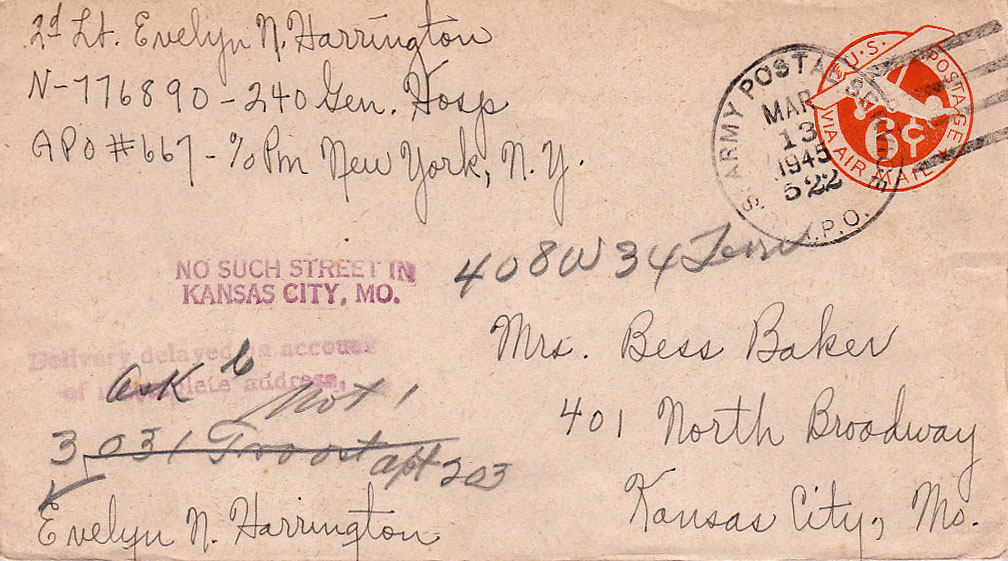 2d Lt. Evelyn N. Harrington
N-776890-240 Gen. Hosp
APO #667 - % Pm New York, N.Y.
U.S. POSTAGE
6¢
VIA AIR MAIL
U.S. ARMY POSTAL SERVICE
MAR
13
1945
522
A.P.O.
NO SUCH STREET IN
KANSAS CITY, MO.
408 W 34 Terr
Delivery delayed on account
of incomplete address.
Mrs. Bess Baker
Ask
Not 1
401 North Broadway
3031 Troost apt 203
Kansas City, Mo.
Evelyn N. Harrington